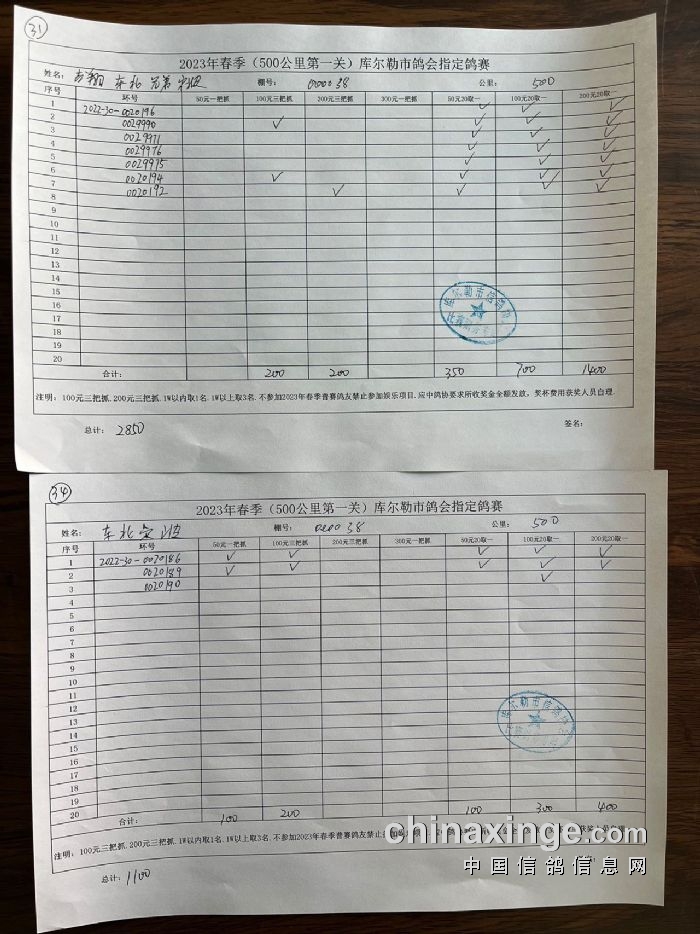 31
2023年春季（500公里第一关）库尔勒市鸽会指定鸽赛
姓名： 东北 兄弟 棚号： 000038 公里： 500
序号 环号 50元一把抓 100元三把抓 200元三把抓 300元一把抓 50元20取一 100元20取一 200元20取一
1 2022-30-0020196 ✓ ✓ ✓
2 0029990 ✓ ✓ ✓ ✓
3 0029971 ✓ ✓ ✓
4 0029976 ✓ ✓ ✓
5 0029975 ✓ ✓ ✓
6 0020194 ✓ ✓ ✓ ✓
7 0020192 ✓ ✓ ✓ ✓
8
9
10
11
12
13
14
15
16
17
18
19
20
库尔勒市信鸽协
合计： 200 200 350 700 1400
注明：100元三把抓.200元三把抓.1W以内取1名.1W以上取3名.不参加2023年春季普赛鸽友禁止参加娱乐项目.应中鸽协要求所收奖金全额发放，奖杯费用获奖人员自理.
总计： 2850 签名：
34
2023年春季（500公里第一关）库尔勒市鸽会指定鸽赛
姓名： 东北 棚号： 000038 公里： 500
序号 环号 50元一把抓 100元三把抓 200元三把抓 300元一把抓 50元20取一 100元20取一 200元20取一
1 2022-30-0020186 ✓ ✓ ✓ ✓ ✓
2 0020189 ✓ ✓ ✓ ✓ ✓
3 0020190 ✓
4
5
6
7
8
9
10
11
12
13
14
15
16
17
18
19
20
库尔勒市信鸽协
合计： 100 200 100 300 400
注明：100元三把抓.200元三把抓.1W以内取1名.1W以上取3名.不参加2023年春季普赛鸽友禁止参加
总计： 1100
chinaxinge.com
中国信鸽信息网